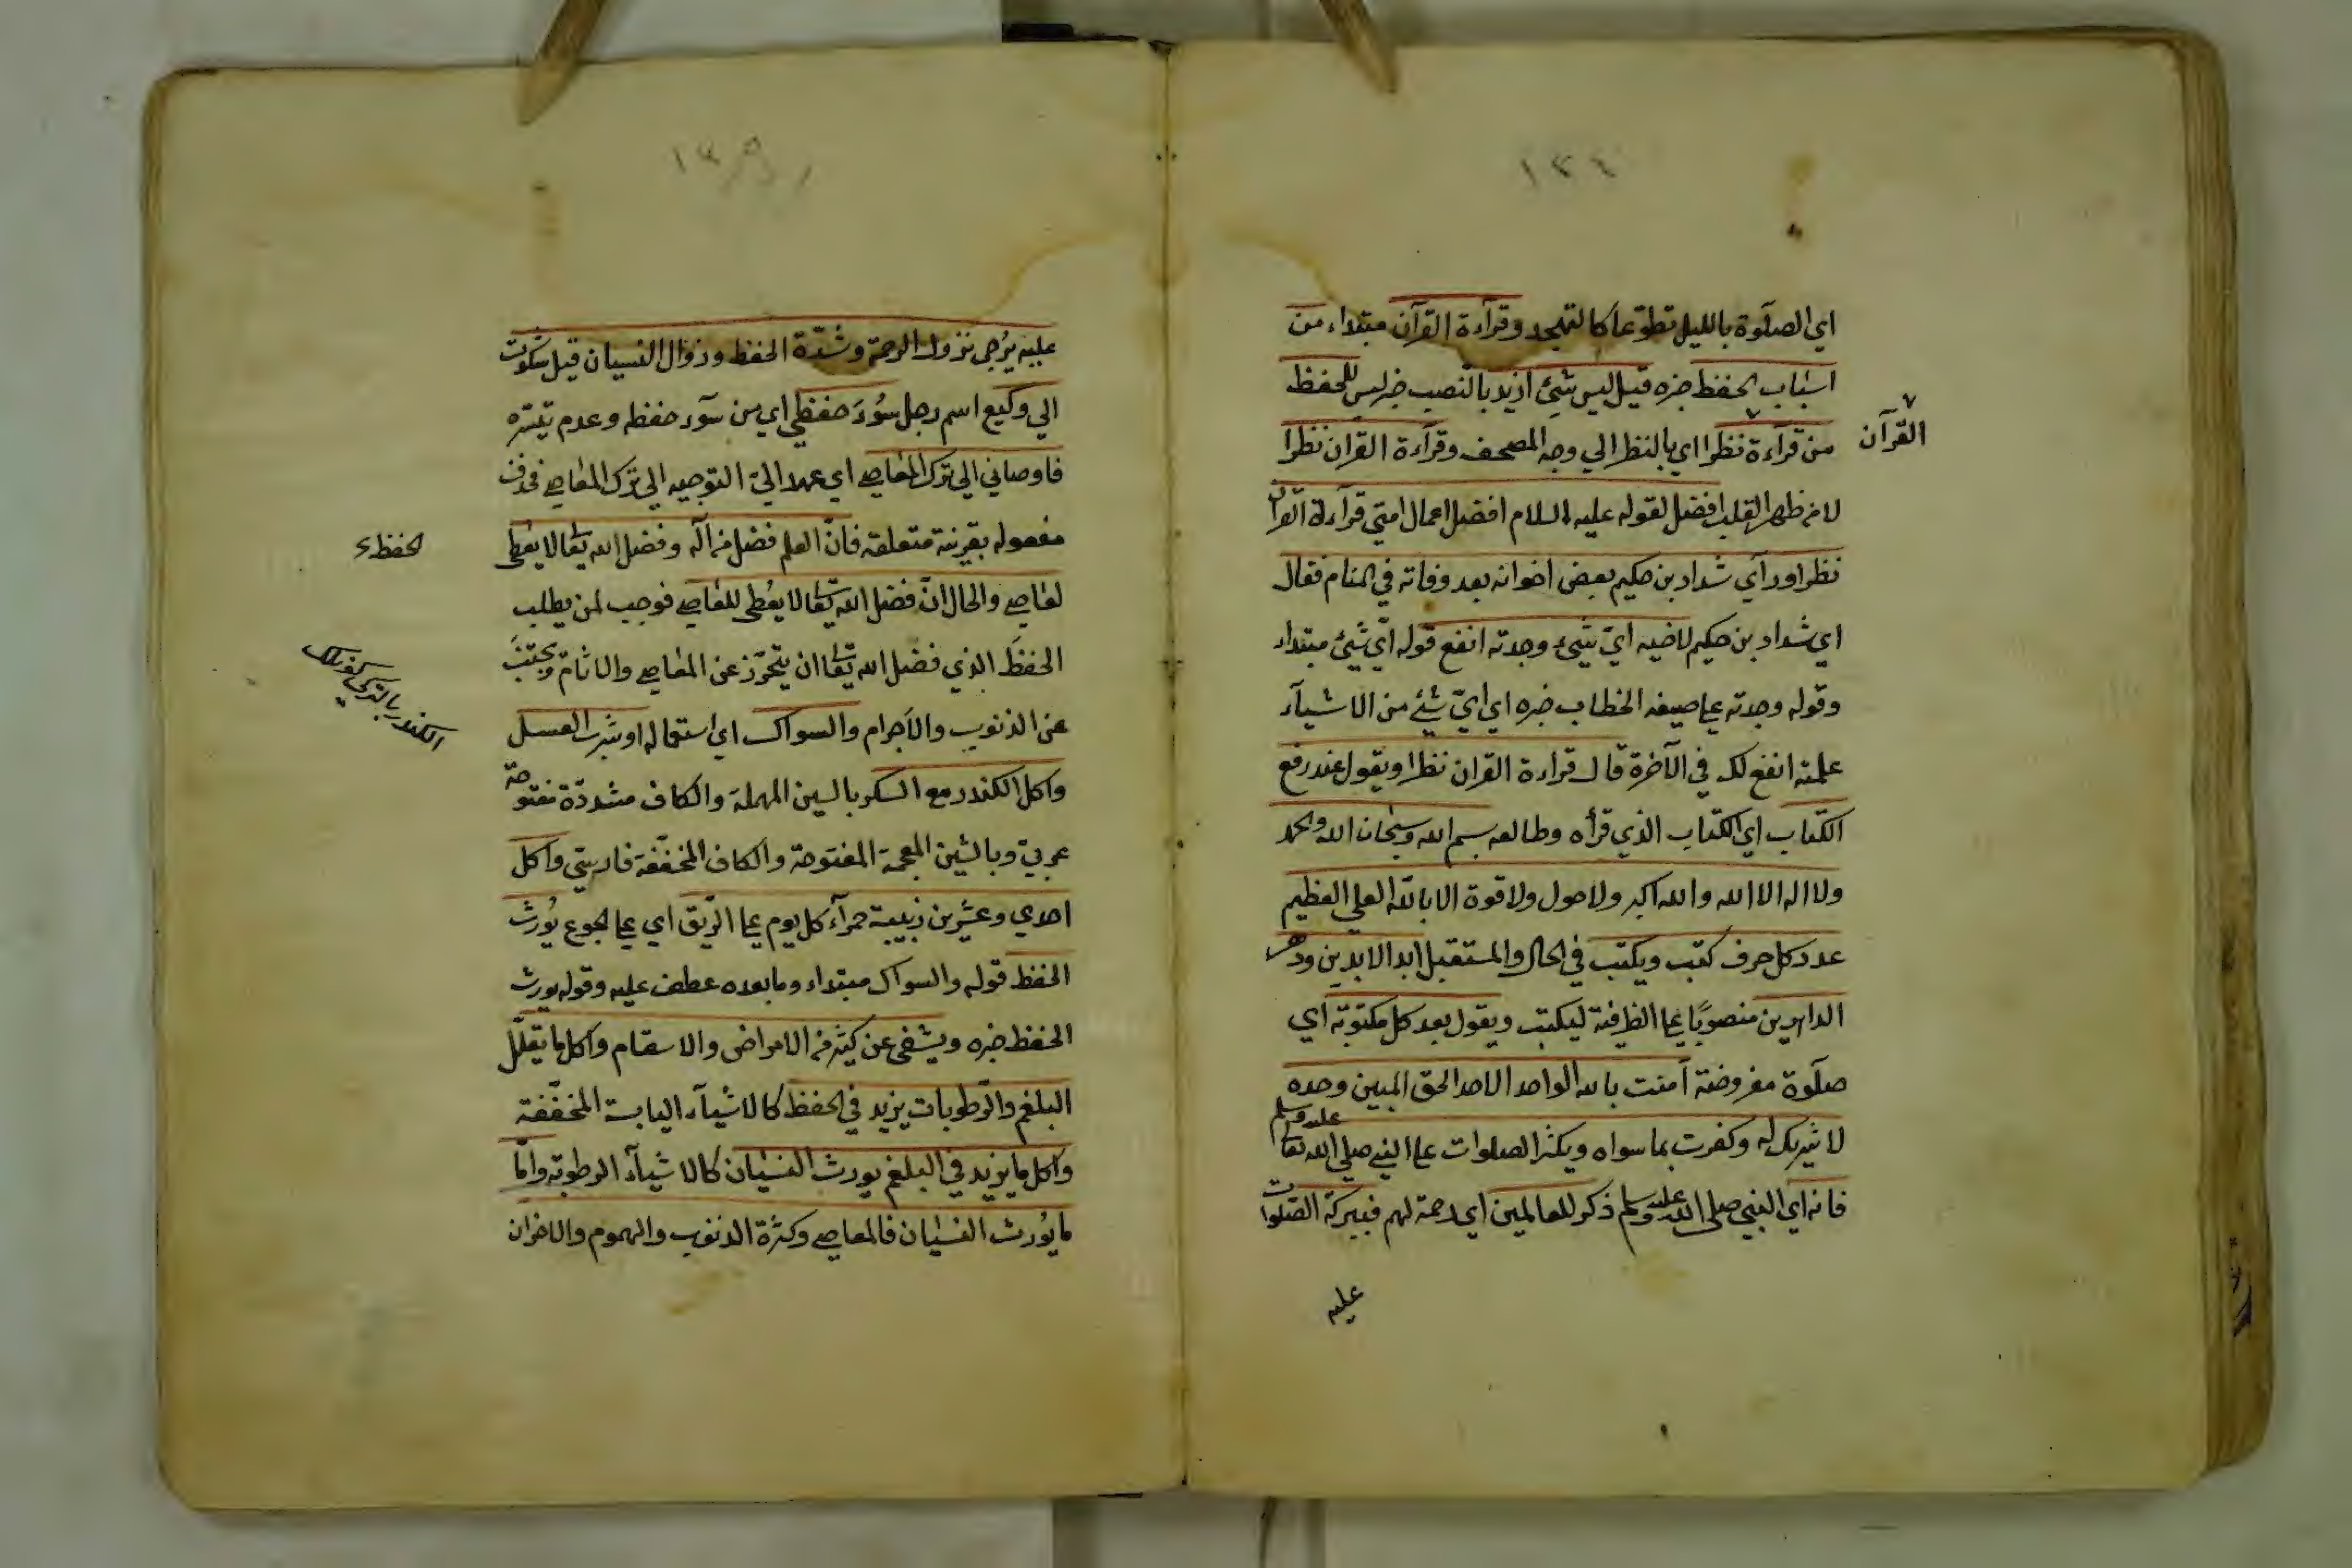 ١٣٤
اي الصلوة بالليل تطوّعا كالتهجد وقرآءة القرآن مبتداء من
اسباب الحفظ خبره قيل ليس شيئ ازيد بالنصب خبر ليس للحفظ
من قرآءة نظرا اي بالنظر الي وجه المصحف وقرآءة القرآن نظرا
القرآن
لا من ظهر القلب افضل لقوله عليه السلام افضل اعمال امتي قرآءة القرآن
نظرا ورآي شداد بن حكيم بعض اخوانه بعد وفاته في المنام فقال
اي شداد بن حكيم لاخيه ايّ شيئ وجدته انفع قوله ايّ شيئ مبتداء
وقوله وجدته علي صيغه الخطاب خبره اي ايّ شيئ من الاشيآء
علمته انفع لك في الآخرة قال قراءة القران نظرا ويقول عند رفع
الكتاب اي الكتاب الذي قرأه وطالعه بسم الله وسبحان الله والحمد
ولا اله الا الله والله اكبر ولا حول ولا قوة الا بالله العلي العظيم
عدد كل حرف كتب ويكتب في الحال والمستقبل ابد الابدين ودهر
الداهرين منصوبًا علي الظرفية ليكتب ويقول بعد كل مكتوبة اي
صلوة مفروضة آمنت بالله الواحد الاحد الحق المبين وحده
لا شريك له وكفرت بما سواه ويكثر الصلوات علي النبي صلي الله تعا عليه وسلم
فانه اي النبي صلي الله عليه وسلم ذكر للعالمين اي رحمة لهم فببركة الصلوات
عليه
عليه يُرجى نزول الرحمة وشدّة الحفظ وزوال النسيان قيل شكوت
الي وكيع اسم رجل سُوءَ حفظي اي من سوء حفظ وعدم تيسّره
فاوصاني الي ترك المعاصي اي عهد اليّ التوجيه الي ترك المعاصي فحذف
مفعوله بقرينة متعلقه فانّ العلم فضل من اله وفضل الله تعا لا يعطى
الحفظ
لعاصي والحال انّ فضل الله تعا لا يعُطى للعاصي فوجب لمن يطلب
الحفظَ الذي فضل الله تعا ان يتحرّز عن المعاصي والاثام ويجتنبَ
عن الذنوب والاَجرام والسواك اي استعماله او شرب العسل
الكندر بالتركي
واكل الكندر مع السكر بالسين المهملة والكاف مشددّة مفتوحة
عربيّ وبالشين المعجمة المفتوحة والكاف المخففة فارسيّ واكل
احدي وعشرين زبيبة حمرآء كل يوم علي الرّيق اي علي الجوع يُورث
الحفظ قوله والسواك مبتداء وما بعده عطف عليه وقوله يورث
الحفظ خبره ويشفي عن كثير من الامراض والاسقام واكل ما يقلّل
البلغم والرّطوبات يزيد في الحفظ كالاشيآء اليابسة المخففة
واكل ما يزيد في البلغم يورث النسيان كالاشيآء الرطوبة وامّا
ما يُورث النسيان فالمعاصي وكثرة الذنوب والهموم والاحزان